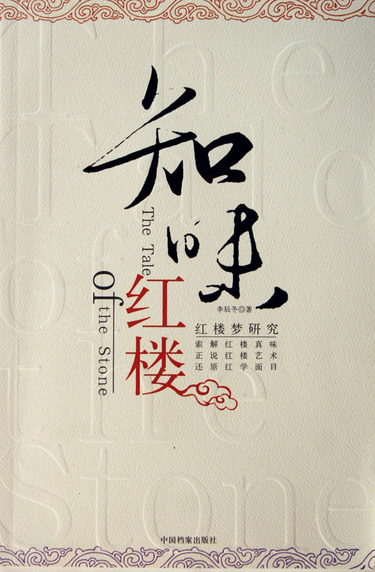 The
Tale
of
the
Stone
知味
The Tale
of the Stone
红楼
李辰冬◎著
红楼梦研究
索解红楼真味
正说红楼艺术
还原红学面目
中国档案出版社